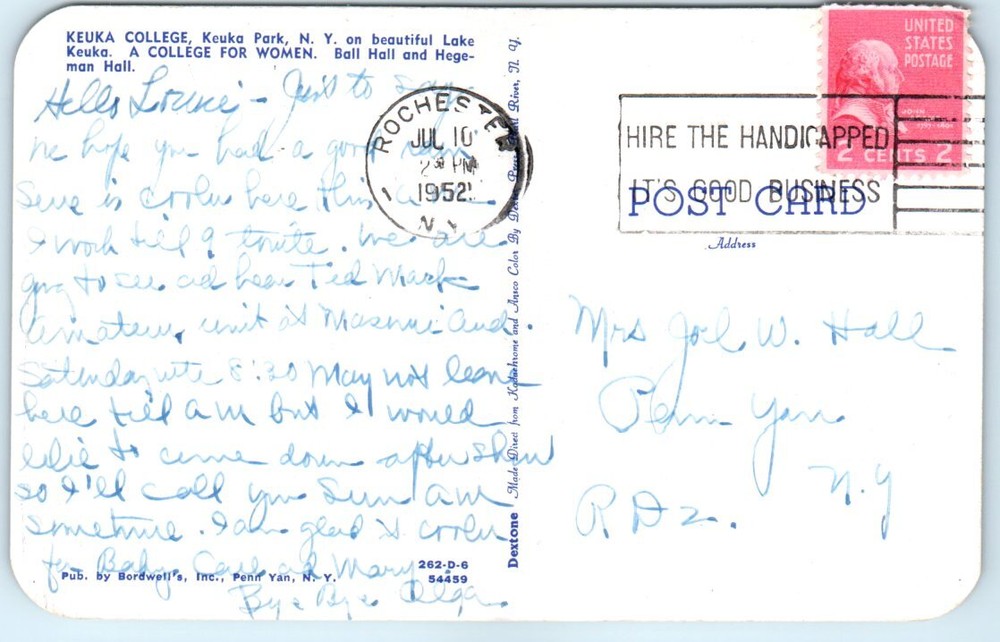 KEUKA COLLEGE, Keuka Park, N. Y. on beautiful Lake
Keuka. A COLLEGE FOR WOMEN. Ball Hall and Hege-
man Hall.
Hello Louise - Just to say
we hope you had a good rain
is cooler here this
I work till 9 tonite. We are
going to see ad hear Ted Mack
Amateur unit at Masonic Aud.
Saturday nite 8:30 May not leave
here till AM but I would
like to come down after show
so I'll call you Sun AM
sometime. I am glad is cooler
for Baby ad Mary.
Bye Bye Olga
Pub. by Bordwell's, Inc., Penn Yan, N. Y.
262-D-6
54459
Dextone Made Direct from Kodachrome and Ansco Color By River, N. Y.
ROCHESTER
JUL 10
PM
1952
N.Y.
1
HIRE THE HANDICAPPED
IT'S GOOD BUSINESS
UNITED
STATES
POSTAGE
2 CENTS 2
POST CARD
Address
Mrs Joel W. Hall
Penn Yan
N.Y
R D 2.